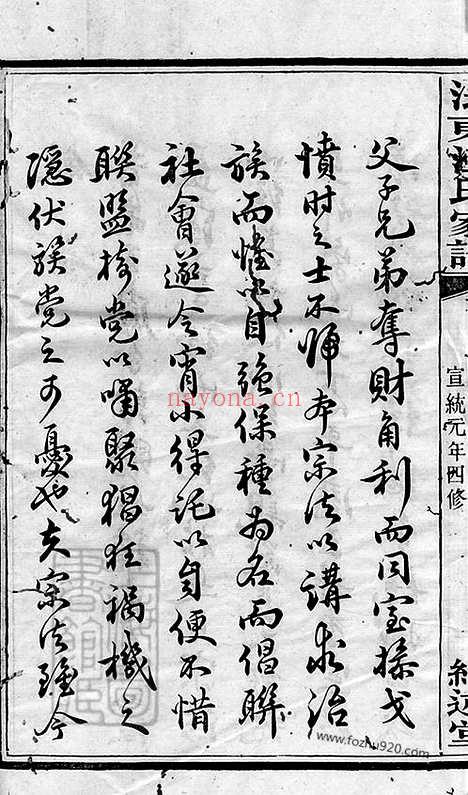 父子兄弟奪財角利而同室操戈
憤時之士不師本宗法以講求治
族而惟以自強保種為名而倡聯
社會遂令宵小得託以自便不惜
聯盟樹党以嘯聚猖狂禍機之
隱伏族党之可憂也夫宗法雖今
氏家
宣統元年四修
堂
nayona.cn
www.fozhu920.com